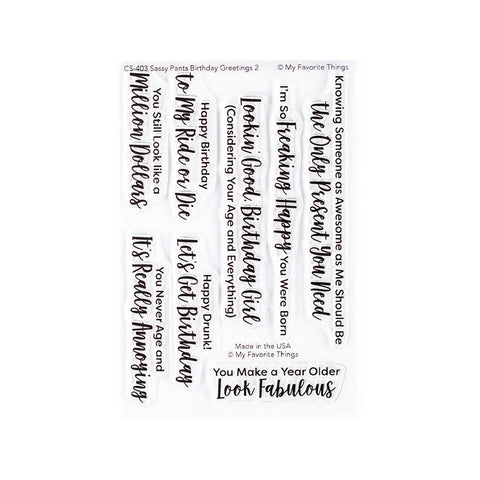 CS-403 Sassy Pants Birthday Greetings 2
© My Favorite Things
You Still Look like a
Million Dollars
Happy Birthday
to My Ride or Die
Lookin' Good, Birthday Girl
(Considering Your Age and Everything)
I'm So Freaking Happy You Were Born
Knowing Someone as Awesome as Me Should Be
the Only Present You Need
You Never Age and
It's Really Annoying
Happy Drunk!
Let's Get Birthday
Made in the USA
© My Favorite Things
You Make a Year Older
Look Fabulous